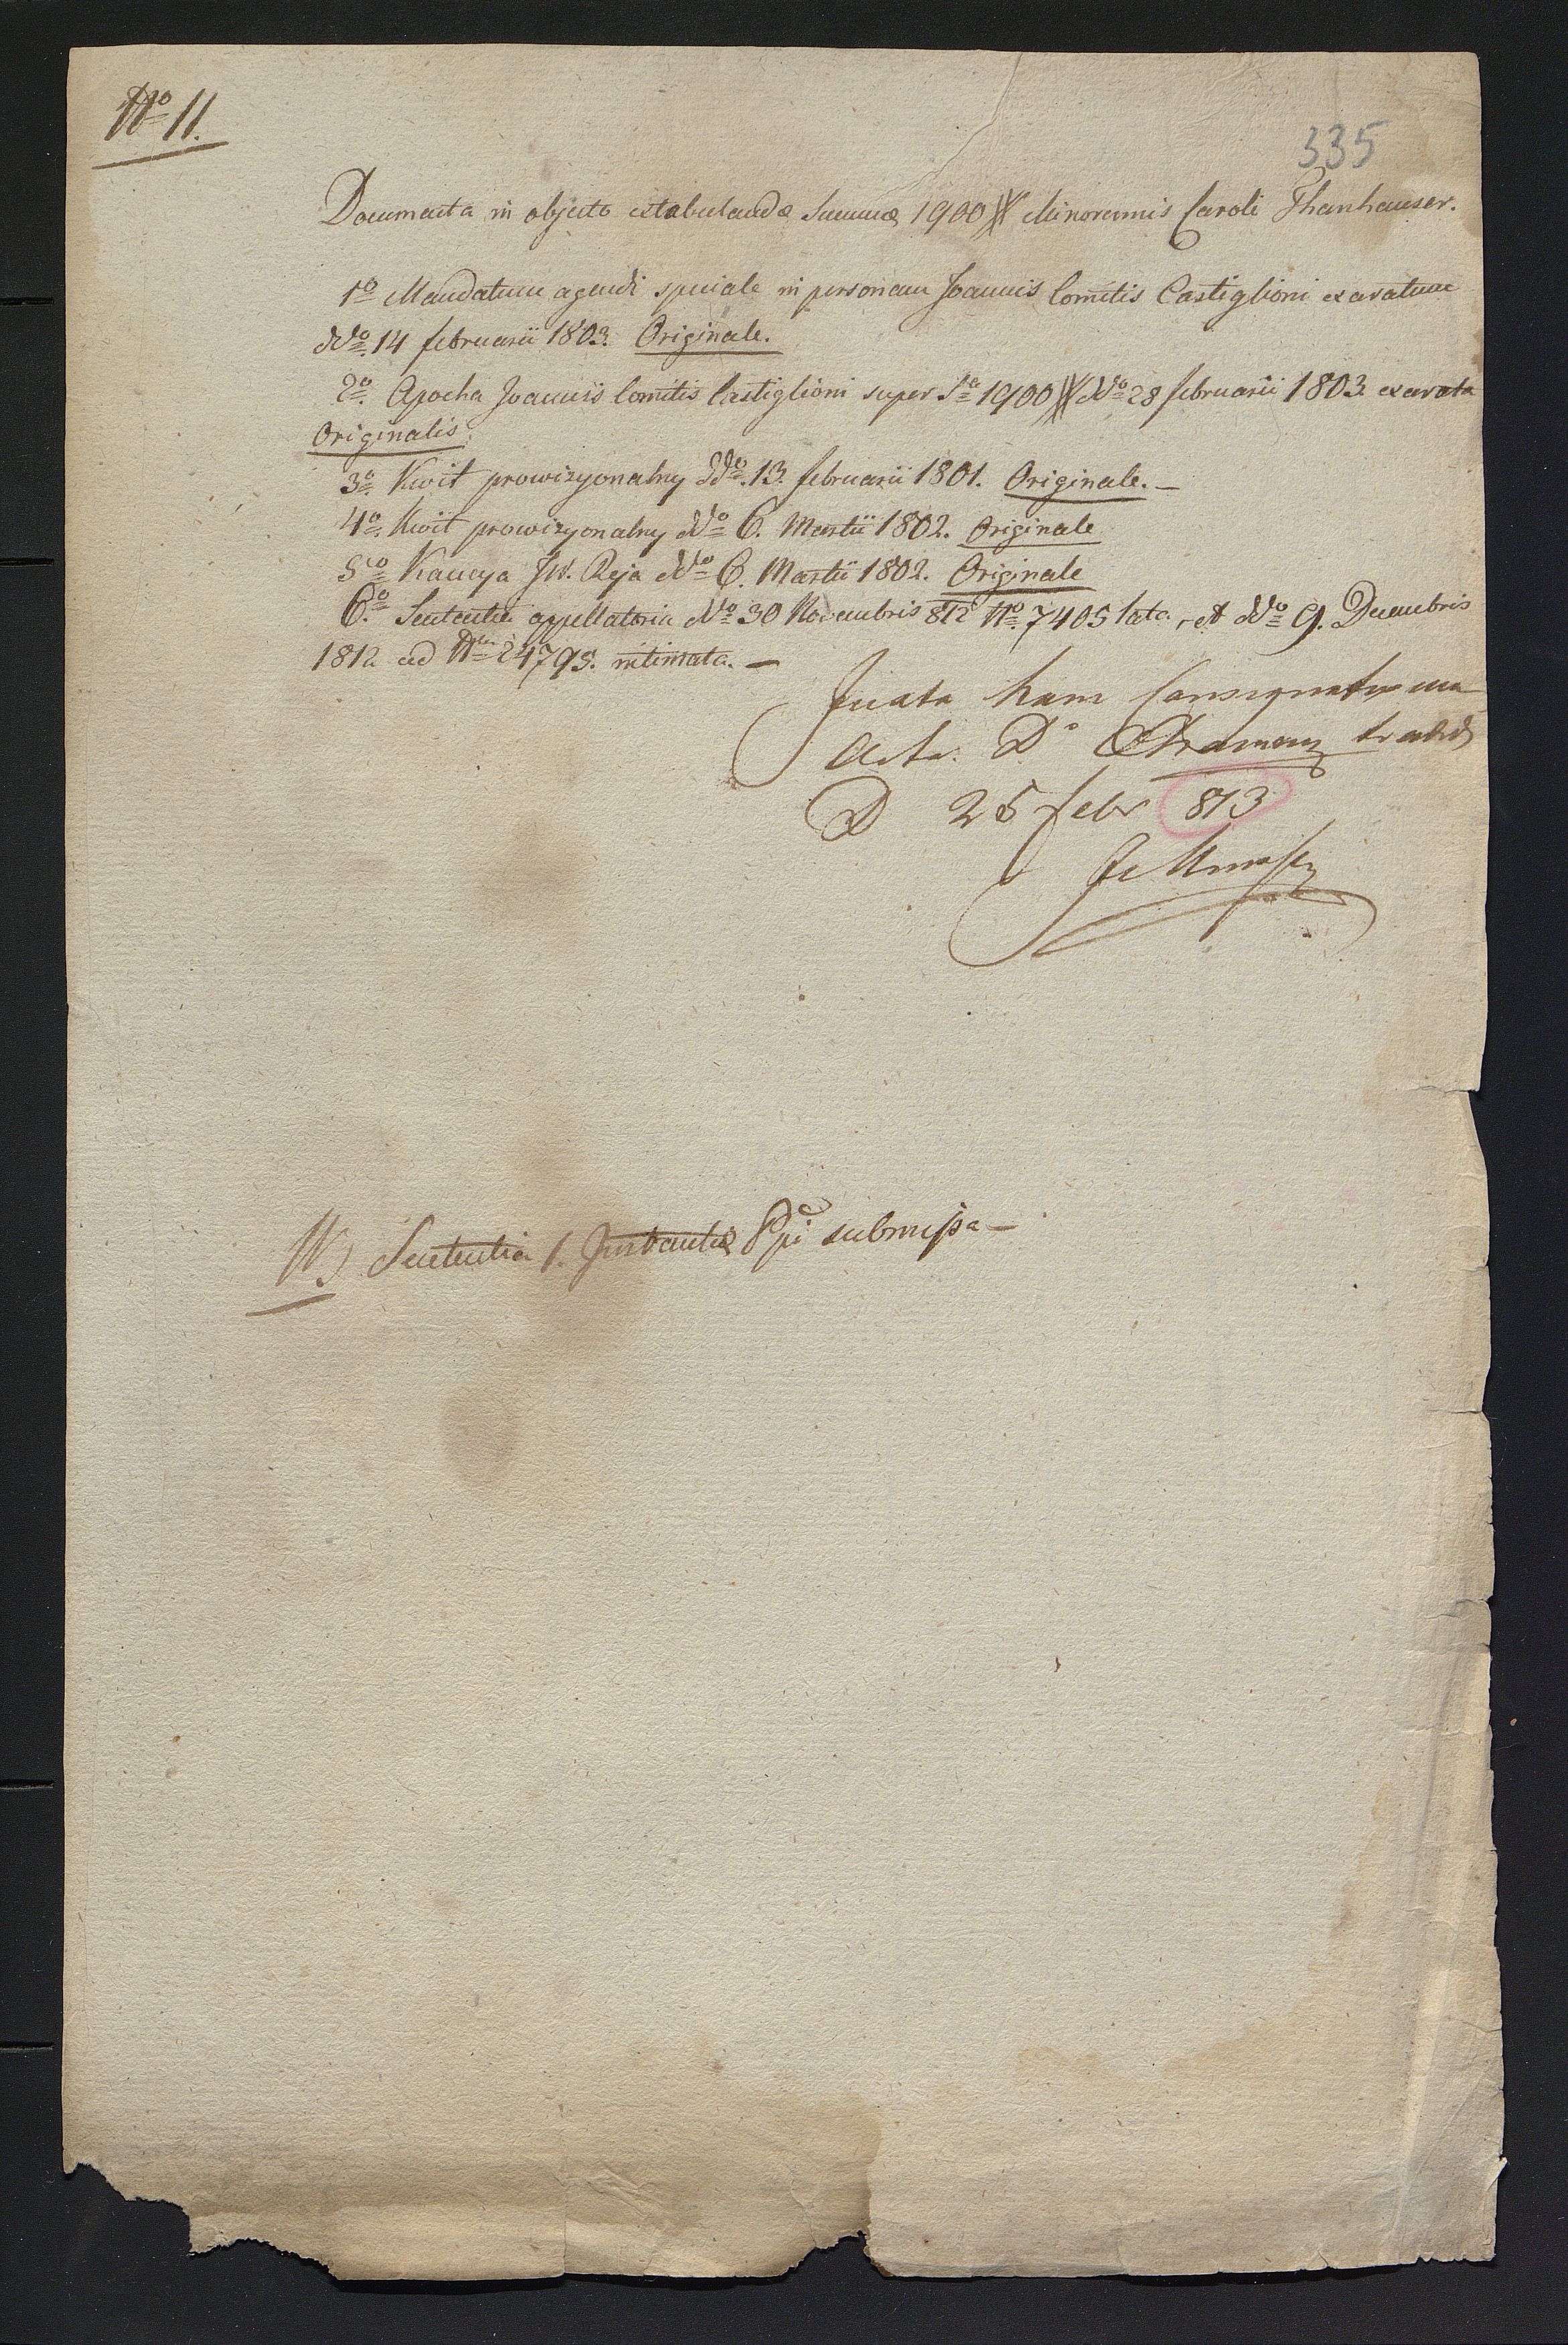 Nº 11.
335
Documenta in objecto extabulandæ Summæ 1900 # Minorennis Caroli Thanhauser.
1º Mandatum agendi speciale in personam Joannis Comitis Castiglioni exaratum
ddº 14 februarii 1803. Originale.
2º. Apocha Joannis Comitis Castiglioni super Sª 1900 # ddº 28 februarii 1803. exarata
Originalis.
3º. Kwit prowizyonalny ddº. 13. februarii 1801. Originale. —
4º. Kwit prowizyonalny ddº 6. Martii 1802. Originale
5to Kaucya JW. Reja ddº 6. Martii 1802. Originale
6º. Sententia appellatoria ddº 30 Novembris 812 Nº. 7405 lata, et ddº 9. Decembris
1812 ad Nrm 24793. intimata. —
Juxta hanc Consignationem
acta Dº tradidi
D 25 febr 813
N) Sententia 1. Instantiæ submissa —